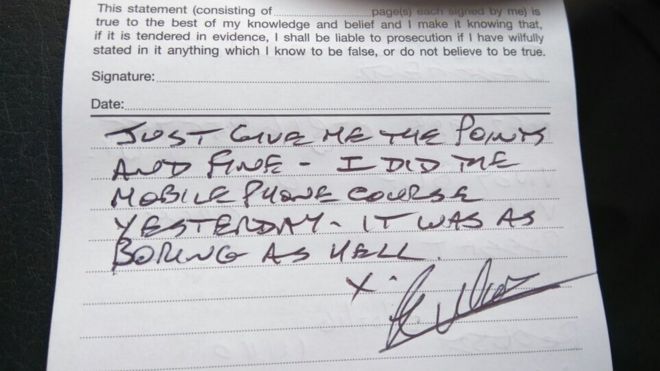 This statement (consisting of.................page(s) each signed by me) is
true to the best of my knowledge and belief and I make it knowing that,
if it is tendered in evidence, I shall be liable to prosecution if I have wilfully
stated in it anything which I know to be false, or do not believe to be true.
Signature:
Date:
JUST GIVE ME THE POINTS
AND FINE - I DID THE
MOBILE PHONE COURSE
YESTERDAY - IT WAS AS
BORING AS HELL.
X.